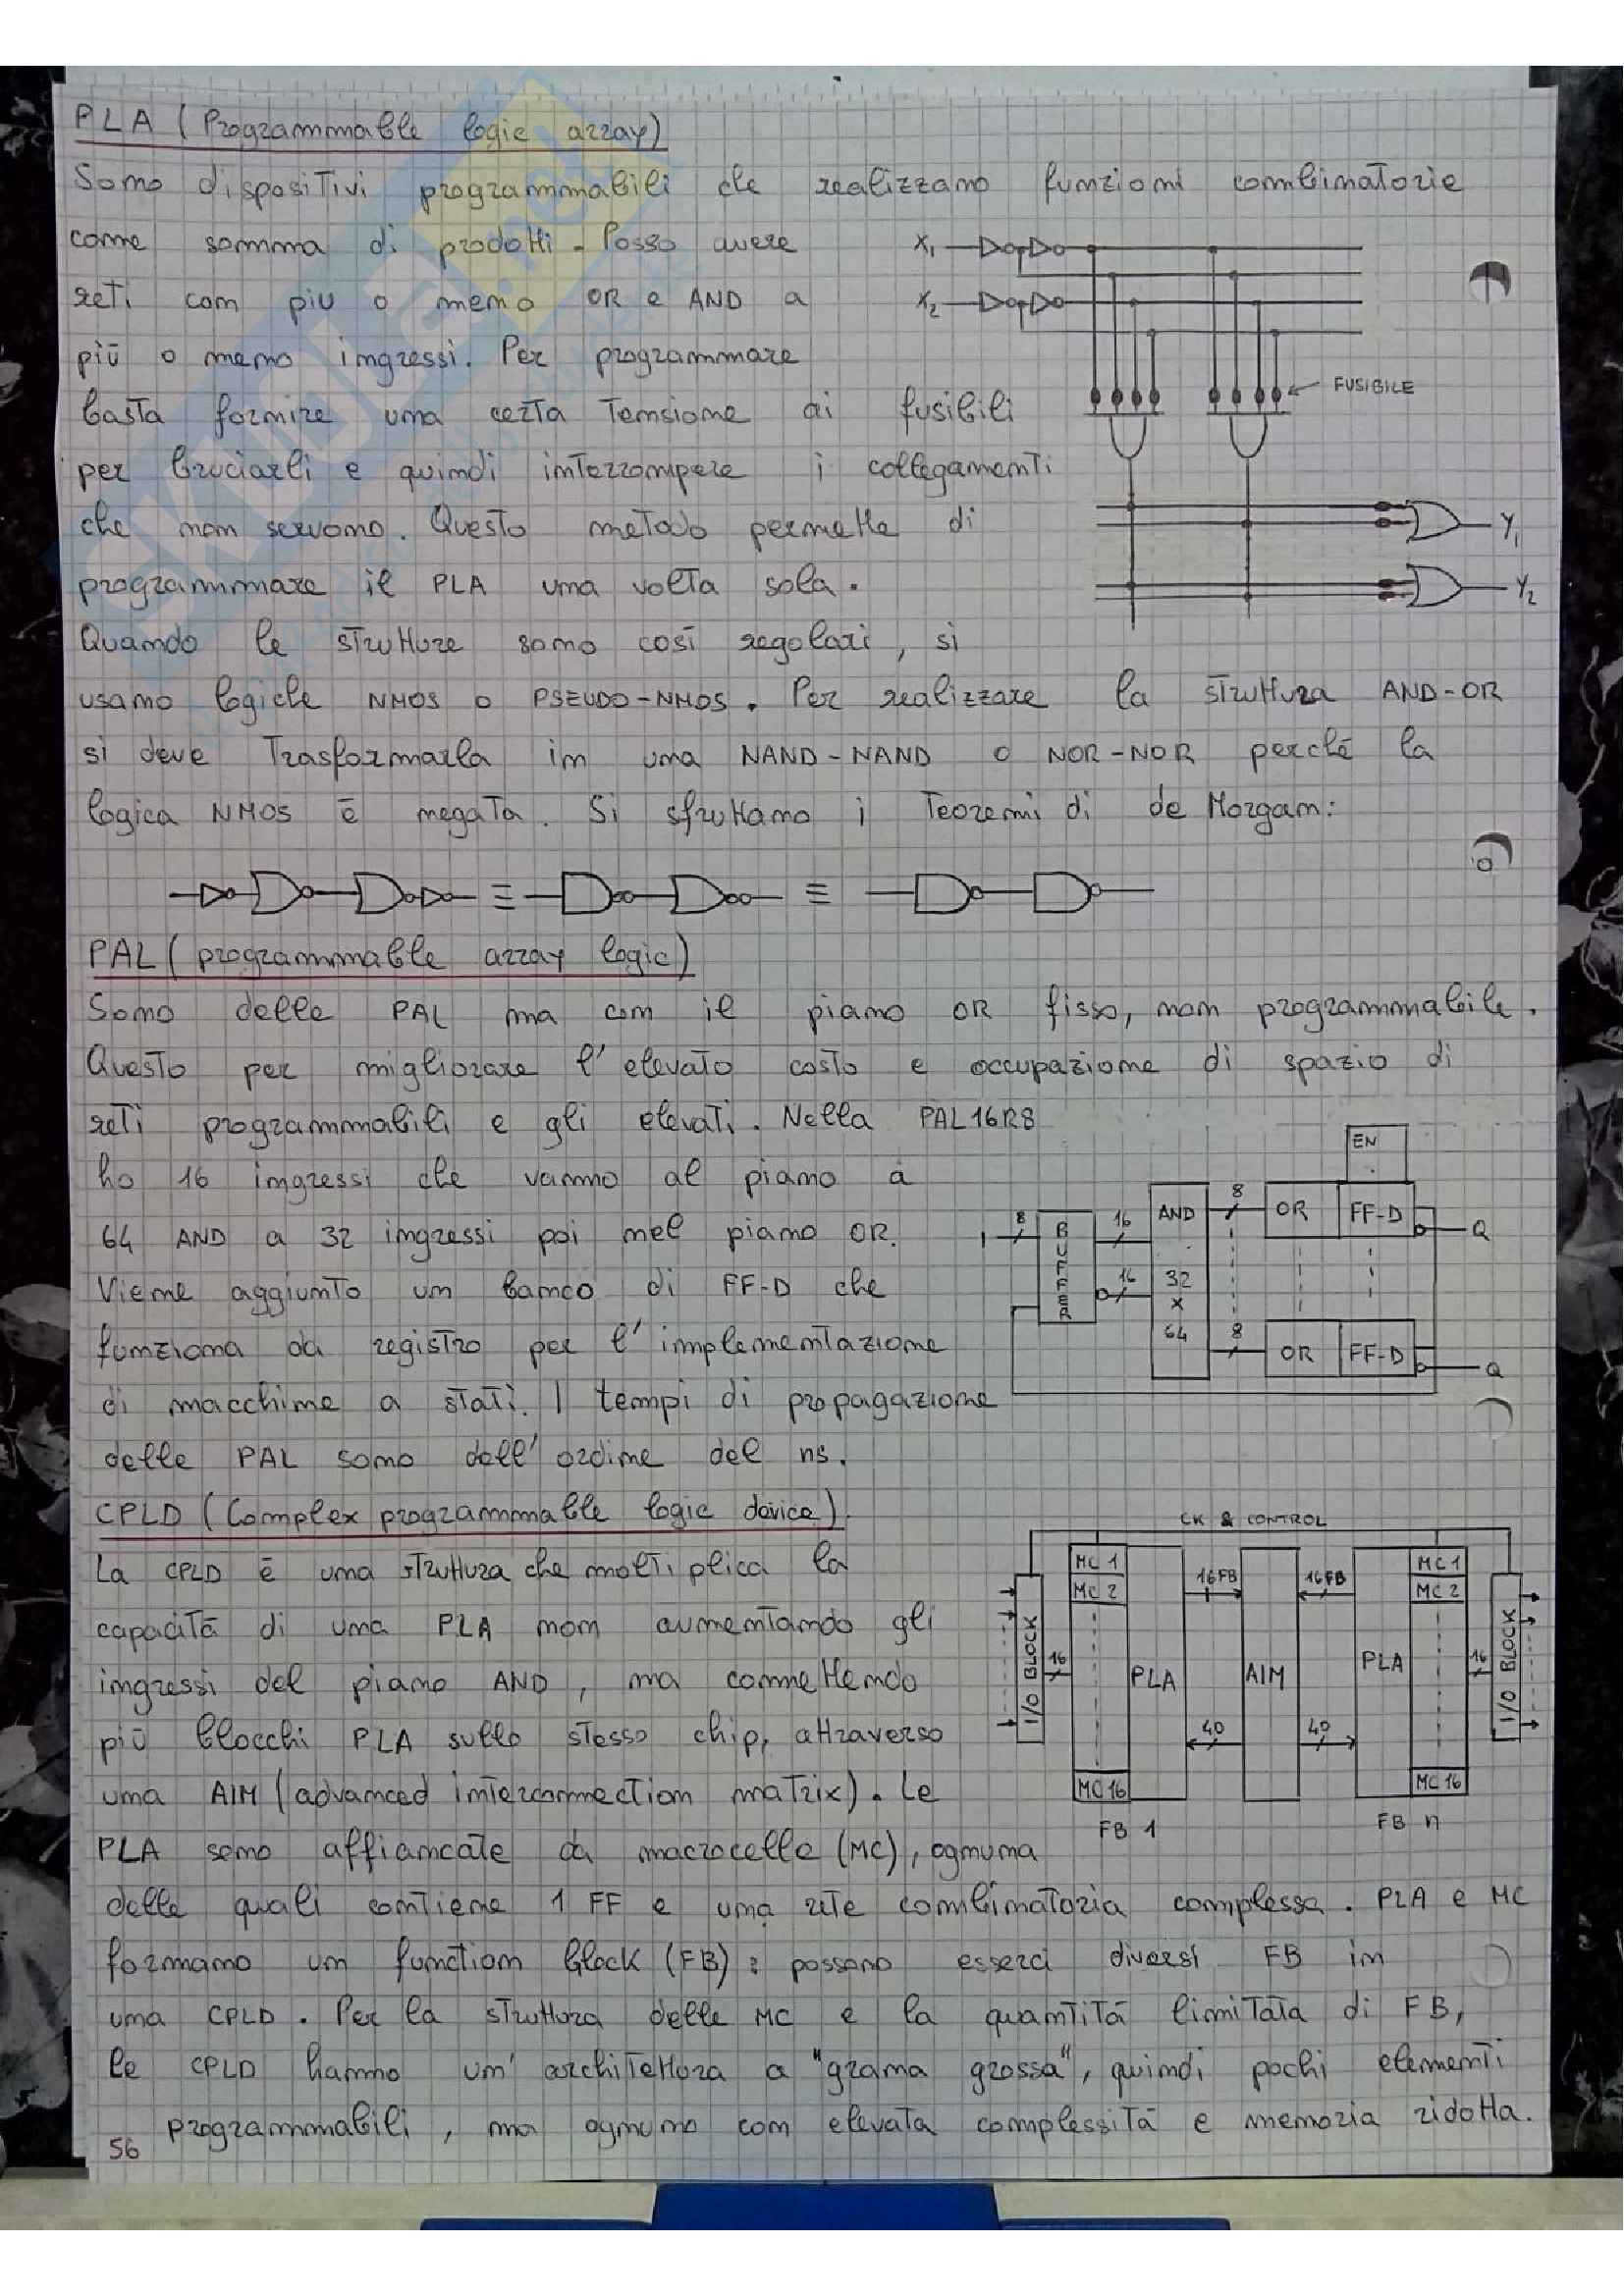 PLA (Programmable logic array)
Sono dispositivi programmabili che realizzano funzioni combinatorie
come somma di prodotti. Posso avere
reti con più o meno OR e AND a
più o meno ingressi. Per programmare
basta fornire una certa tensione ai fusibili
per bruciarli e quindi interrompere i collegamenti
che non servono. Questo metodo permette di
programmare il PLA una volta sola.
X1
X2
FUSIBILE
Y1
Y2
Quando le strutture sono così regolari, si
usano logiche NMOS o PSEUDO-NMOS. Per realizzare la struttura AND-OR
si deve trasformarla in una NAND-NAND o NOR-NOR perché la
logica NMOS è negata. Si sfruttano i teoremi di de Morgan:
≡ ≡
PAL (programmable array logic)
Sono delle PAL ma con il piano OR fisso, non programmabile.
Questo per migliorare l'elevato costo e occupazione di spazio di
reti programmabili e gli elevati. Nella PAL16R8
ho 16 ingressi che vanno al piano a
64 AND a 32 ingressi poi nel piano OR.
Viene aggiunto un banco di FF-D che
funziona da registro per l'implementazione
di macchine a stati. I tempi di propagazione
delle PAL sono dell'ordine del ns.
EN
I 8 BUFFER 16 AND 8 OR FF-D Q
16 32 x 64
8 OR FF-D Q
CPLD (Complex programmable logic device)
La CPLD è una struttura che moltiplica la
capacità di una PLA non aumentando gli
ingressi del piano AND, ma connettendo
più blocchi PLA sullo stesso chip, attraverso
una AIM (advanced interconnection matrix). Le
PLA sono affiancate da macrocelle (MC), ognuna
CK & CONTROL
MC 1 16FB 16FB MC 1
MC 2 MC 2
I/O BLOCK 16 PLA AIM PLA 16 I/O BLOCK
40 40
MC 16 MC 16
FB 1 FB n
delle quali contiene 1 FF e una rete combinatoria complessa. PLA e MC
formano un function block (FB): possono esserci diversi FB in
una CPLD. Per la struttura delle MC e la quantità limitata di FB,
le CPLD hanno un'architettura a "grana grossa", quindi pochi elementi
programmabili, ma ognuno con elevata complessità e memoria ridotta.
56